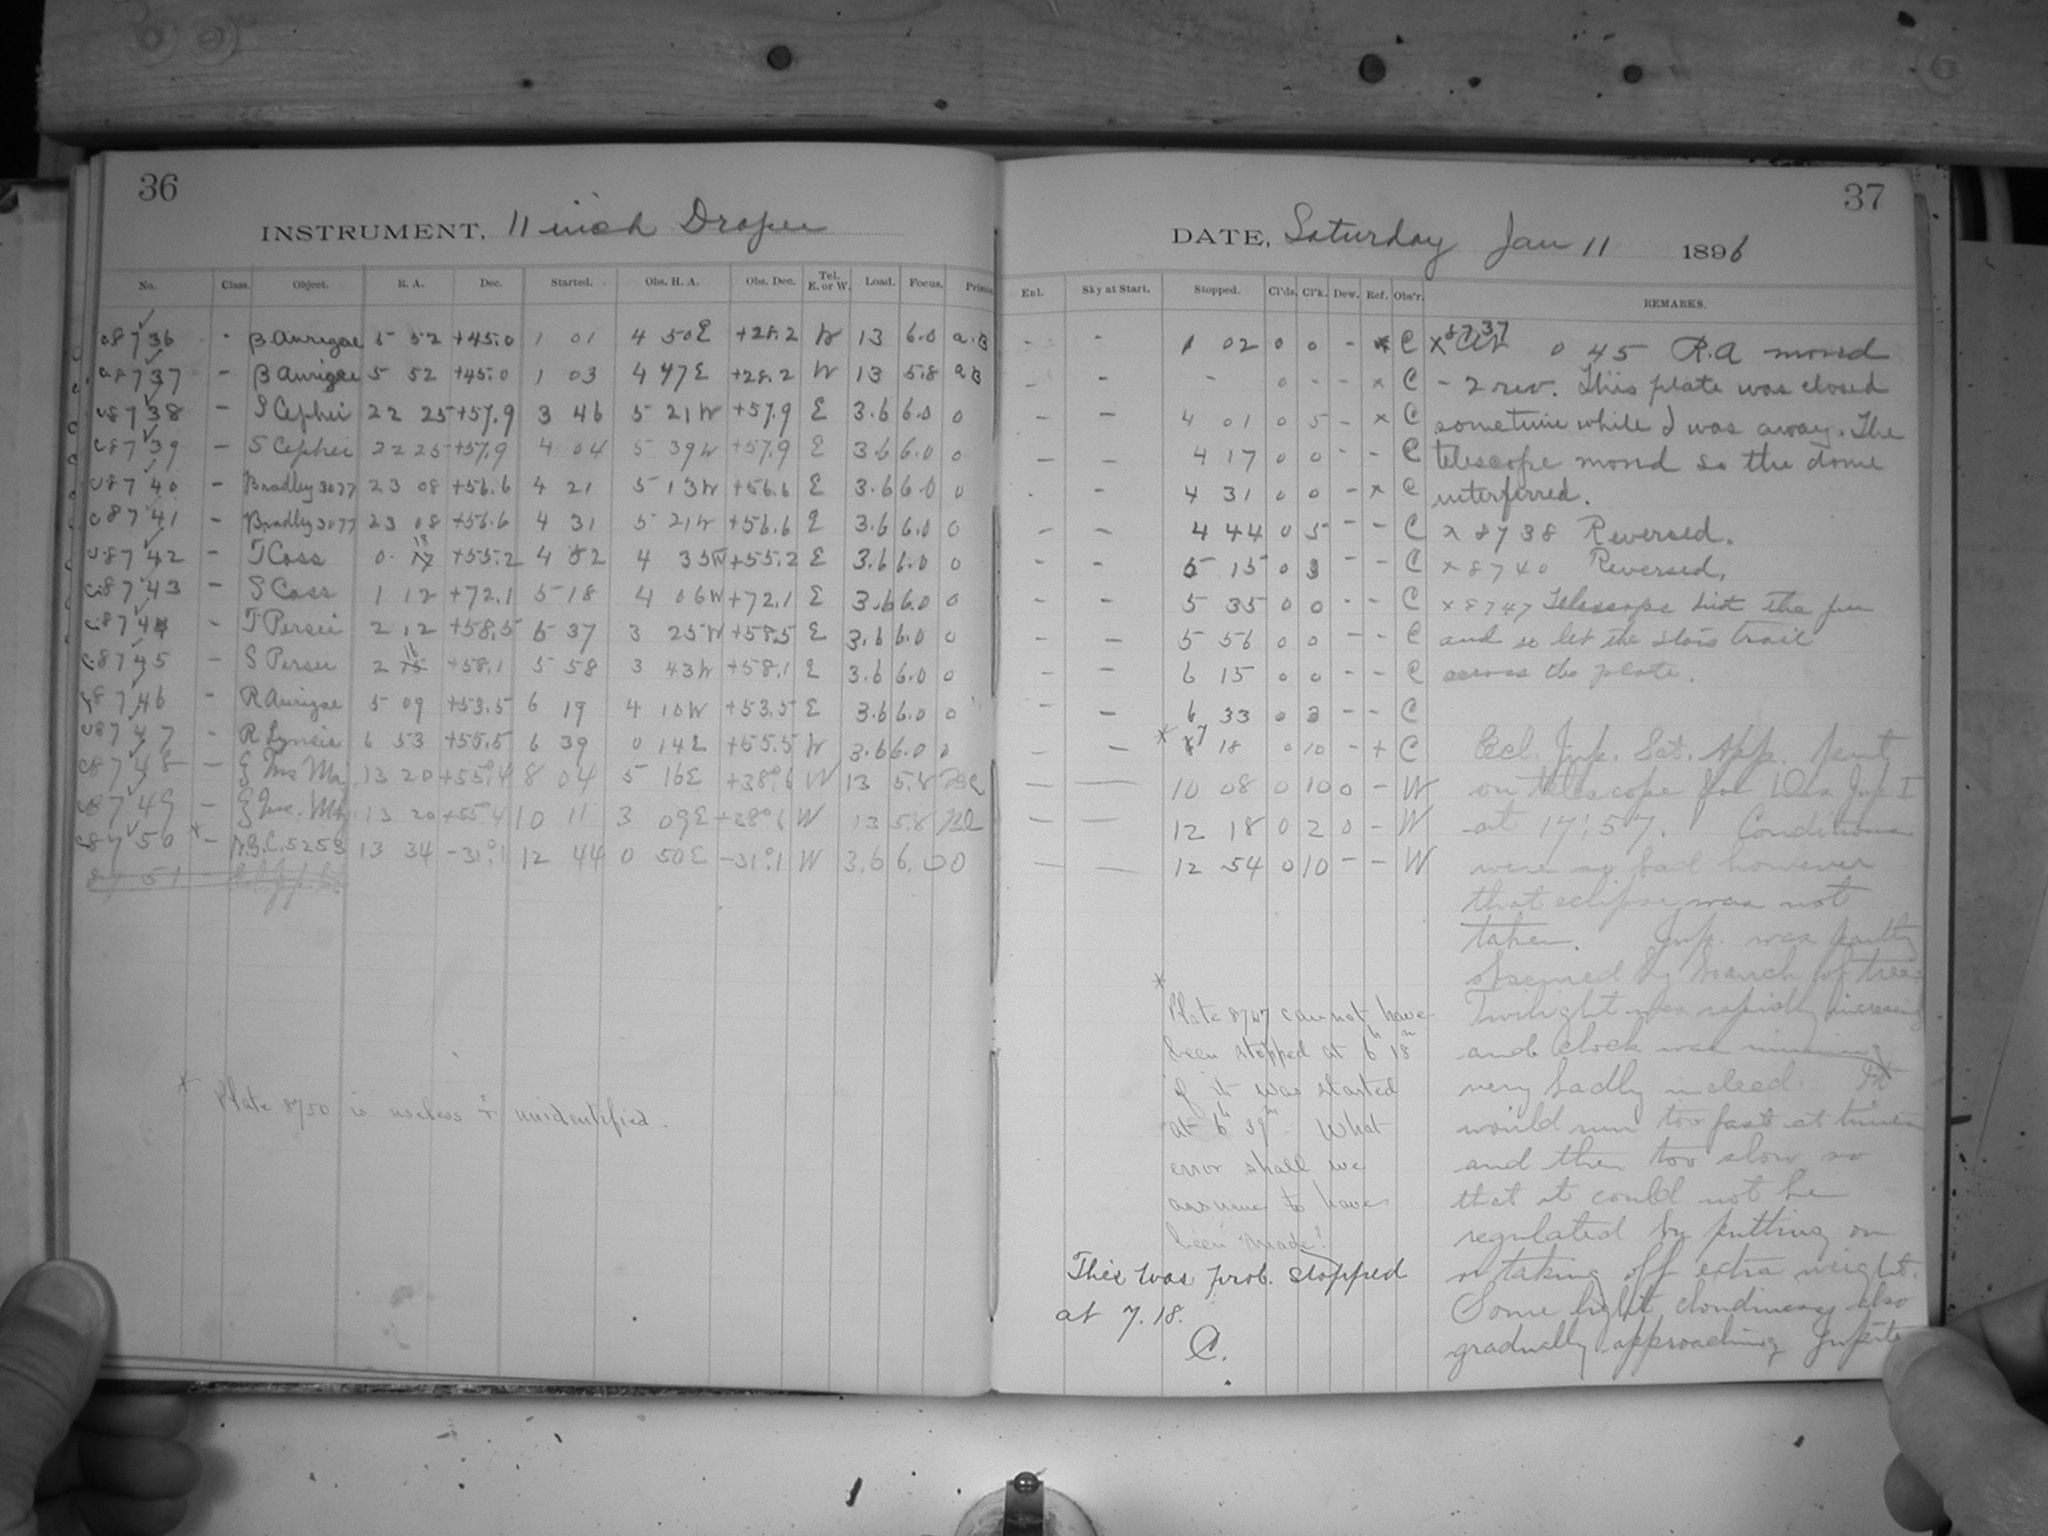 36
INSTRUMENT, 11 inch Draper
No. Class. Object. R. A. Dec. Started. Obs. H. A. Obs. Dec. Tel. E. or W. Load. Focus. Prism
c8736 - β Aurigae 5 52 +45.0 1 01 4 50E +28.2 W 13 6.0 a.B
c8737 - β Aurigae 5 52 +45.0 1 03 4 47E +28.2 W 13 5.8 a B
c8738 - S Cephei 22 25 +57.9 3 46 5 21W +57.9 E 3.6 6.0 0
c8739 - S Cephei 22 25 +57.9 4 04 5 39W +57.9 E 3.6 6.0 0
c8740 - Bradley 3077 23 08 +56.6 4 21 5 13W +56.6 E 3.6 6.0 0
c8741 - Bradley 3077 23 08 +56.6 4 31 5 21W +56.6 E 3.6 6.0 0
c8742 - T Cass 0 18 +55.2 4 52 4 35W +55.2 E 3.6 6.0 0
c8743 - S Cass 1 12 +72.1 5 18 4 06W +72.1 E 3.6 6.0 0
c8744 - T Persei 2 12 +58.5 5 37 3 25W +58.5 E 3.6 6.0 0
c8745 - S Persei 2 16 +58.1 5 58 3 43W +58.1 E 3.6 6.0 0
c8746 - R Aurigae 5 09 +53.5 6 19 4 10W +53.5 E 3.6 6.0 0
c8747 - R Lyncis 6 53 +55.5 6 39 0 14E +55.5 W 3.6 6.0 0
c8748 - ζ Urs. Maj. 13 20 +55°.4 8 04 5 16E +38°.6 W 13 5.8
c8749 - ζ Urs. Maj. 13 20 +55.4 10 11 3 09E +28°.6 W 13 5.8
c8750 * - N.G.C. 5253 13 34 -31°.1 12 44 0 50E -31°.1 W 3.6 6.0 0
8751
* Plate 8750 is useless & unidentified.
37
DATE, Saturday Jan 11 1896
Enl. Sky at Start. Stopped. Cl'ds. Cl'k. Dew. Ref. Obs'r. REMARKS.
- - 1 02 0 0 - x C
- - - 0 - - x C
- - 4 01 0 5 - x C
- - 4 17 0 0 - - C
- - 4 31 0 0 - x C
- - 4 44 0 5 - - C
- - 5 15 0 3 - - C
- - 5 35 0 0 - - C
- - 5 56 0 0 - - C
- - 6 15 0 0 - - C
- - 6 33 0 3 - - C
- - * 7 18 0 10 - + C
- - 10 08 0 10 0 - W
- - 12 18 0 2 0 - W
- - 12 54 0 10 - - W
x 8737 At 0 45 R.A moved
- 2 rev. This plate was closed
sometime while I was away. The
telescope moved so the dome
interferred.
x 8738 Reversed.
x 8740 Reversed.
x 8747 Telescope hit the pier
and so let the stars trail
across the plate.
Ecl. Jup. Sat. App. put
on telescope for Jup I
at 17:57. Conditions
were so bad however
that eclipse was not
taken. Jup. was partly
obscured by branch of tree.
Twilight was rapidly increasing
and clock was running
very badly indeed. It
would run too fast at times
and then too slow so
that it could not be
regulated by putting on
or taking off extra weight.
Some light cloudiness also
gradually approaching Jupiter
*
Plate 8747 cannot have
been stopped at 6h 18m
if it was started
at 6h 39m. What
error shall we
assume to have
been made?
This was prob. stopped
at 7.18.
C.